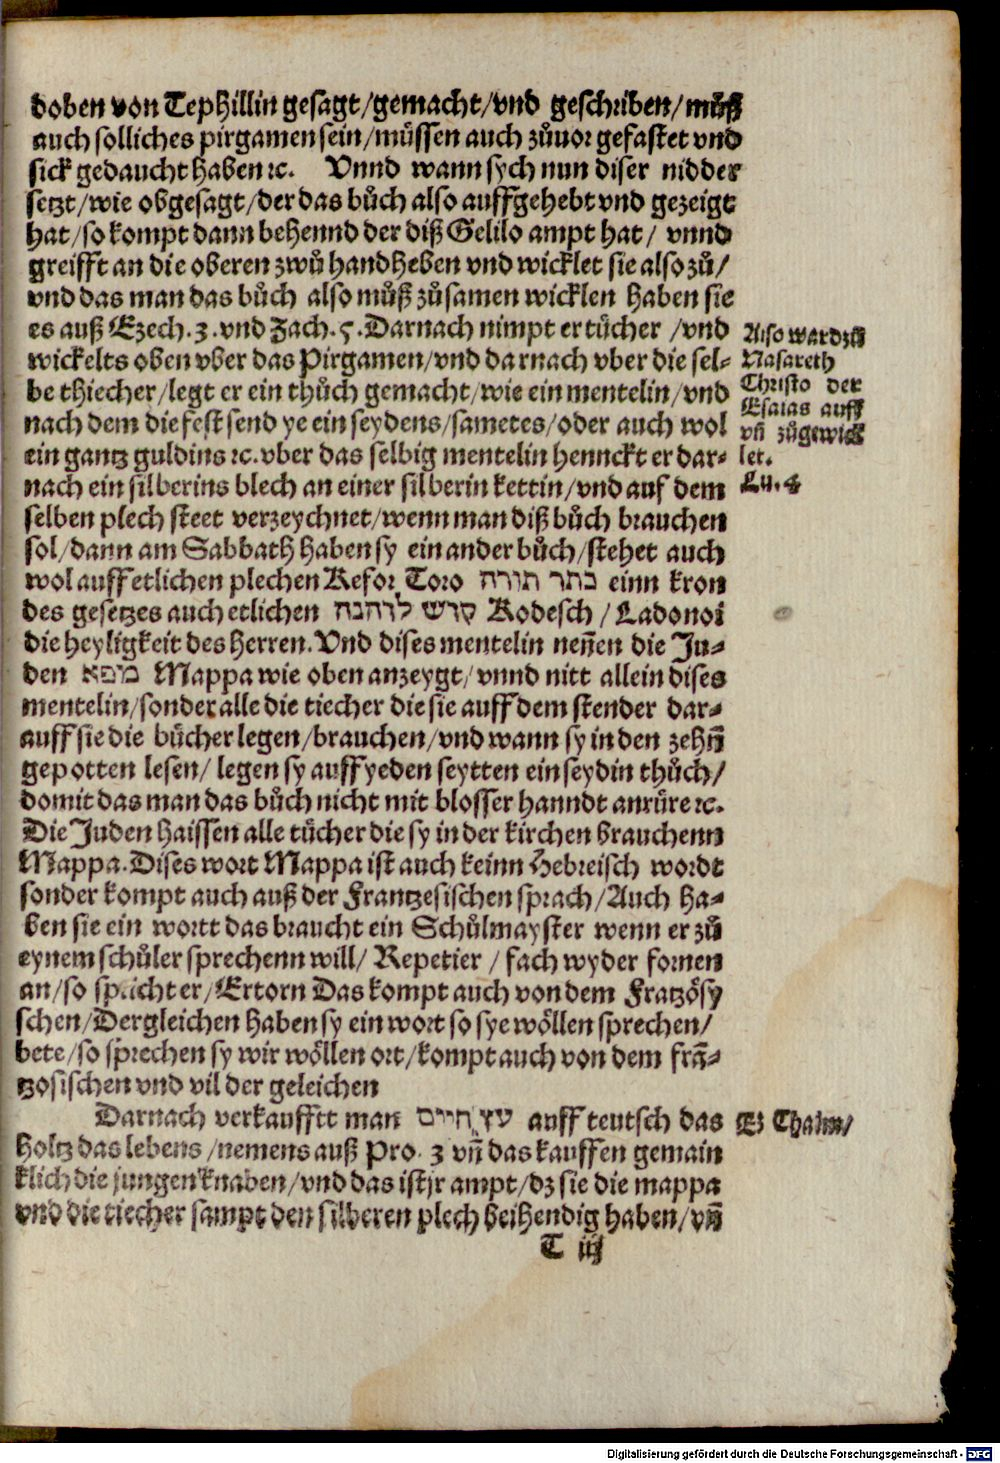 doben von Tephillin gesagt/gemacht/vnd geschriben/muͦß
auch solliches pirgamen sein/muͤssen auch zuͦuor gefastet vnd
sick gedaucht haben ꝛc. Vnnd wann sych nun diser nidder
setzt/wie obgesagt/der das buͦch also auffgehebt vnd gezeigt
hat/so kompt dann behennd der diß Gelilo ampt hat/ vnnd
greifft an die oberen zwuͦ handheben vnd wicklet sie also zuͦ/
vnd das man das buͦch also muͦß zuͦsamen wicklen haben sie
es auß Ezech. 3. vnd Zach. 5. Darnach nimpt er tuͤcher /vnd
wickelts oben vber das Pirgamen/vnd darnach vber die sel⸗
be thiecher/legt er ein thuͦch gemacht/wie ein mentelin/vnd
nach dem die fest send ye ein seydens/sametes/oder auch wol
ein gantz guldins ꝛc. vber das selbig mentelin henckt er dar⸗
nach ein silberins blech an einer silberin kettin/vnd auf dem
selben plech steet verzeychnet/wenn man diß buͦch brauchen
sol/dann am Sabbath haben sy ein ander buͦch/stehet auch
wol auff etlichen plechen Kesor Toro כתר תורה einn kron
des gesetzes auch etlichen קדש לדהנה Kodesch / Ladonoi
die heyligkeit des Herren. Vnd dises mentelin nen̄en die Ju⸗
den מפא Mappa wie oben anzeygt/ vnnd nitt allein dises
mentelin/sonder alle die tiecher die sie auff dem stender dar⸗
auff sie die buͤcher legen/brauchen/vnd wann sy in den zehn̄
gepotten lesen/ legen sy auff yeden seytten ein seydin thuͦch/
domit das man das buͦch nicht mit blosser hanndt anruͤre ꝛc.
Die Juden haissen alle tuͤcher die sy in der kirchen brauchenn
Mappa. Dises wort Mappa ist auch keinn Hebreisch wordt
sonder kompt auch auß der Frantzesischen sprach/Auch ha⸗
ben sie ein wortt das braucht ein Schuͦlmayster wenn er zuͦ
eynem schuͦler sprechenn will/ Repetier / fach wyder fornen
an/so spricht er/Ertorn Das kompt auch von dem Fratzoͤsy
schen/Dergleichen haben sy ein wort so sye woͤllen sprechen/
bete/so sprechen sy wir woͤllen ort/kompt auch von dem frā⸗
tzosischen vnd vil der geleichen
Darnach verkaufftt man עץ חיים auff teutsch das
Holtz das lebens /nemens auß Pro. 3 vn̄ das kauffen gemain
klich die jungen knaben/vnd das ist jr ampt/dz sie die mappa
vnd die tiecher sampt den silberen plech beihendig haben/vn̄
T iij
Also ward zuͦ
Nasareth
Christo der
Esaias auff
vn̄ zuͦgewick
let.
Lu. 4
Ez Chaim/
Digitalisierung gefördert durch die Deutsche Forschungsgemeinschaft - DFG